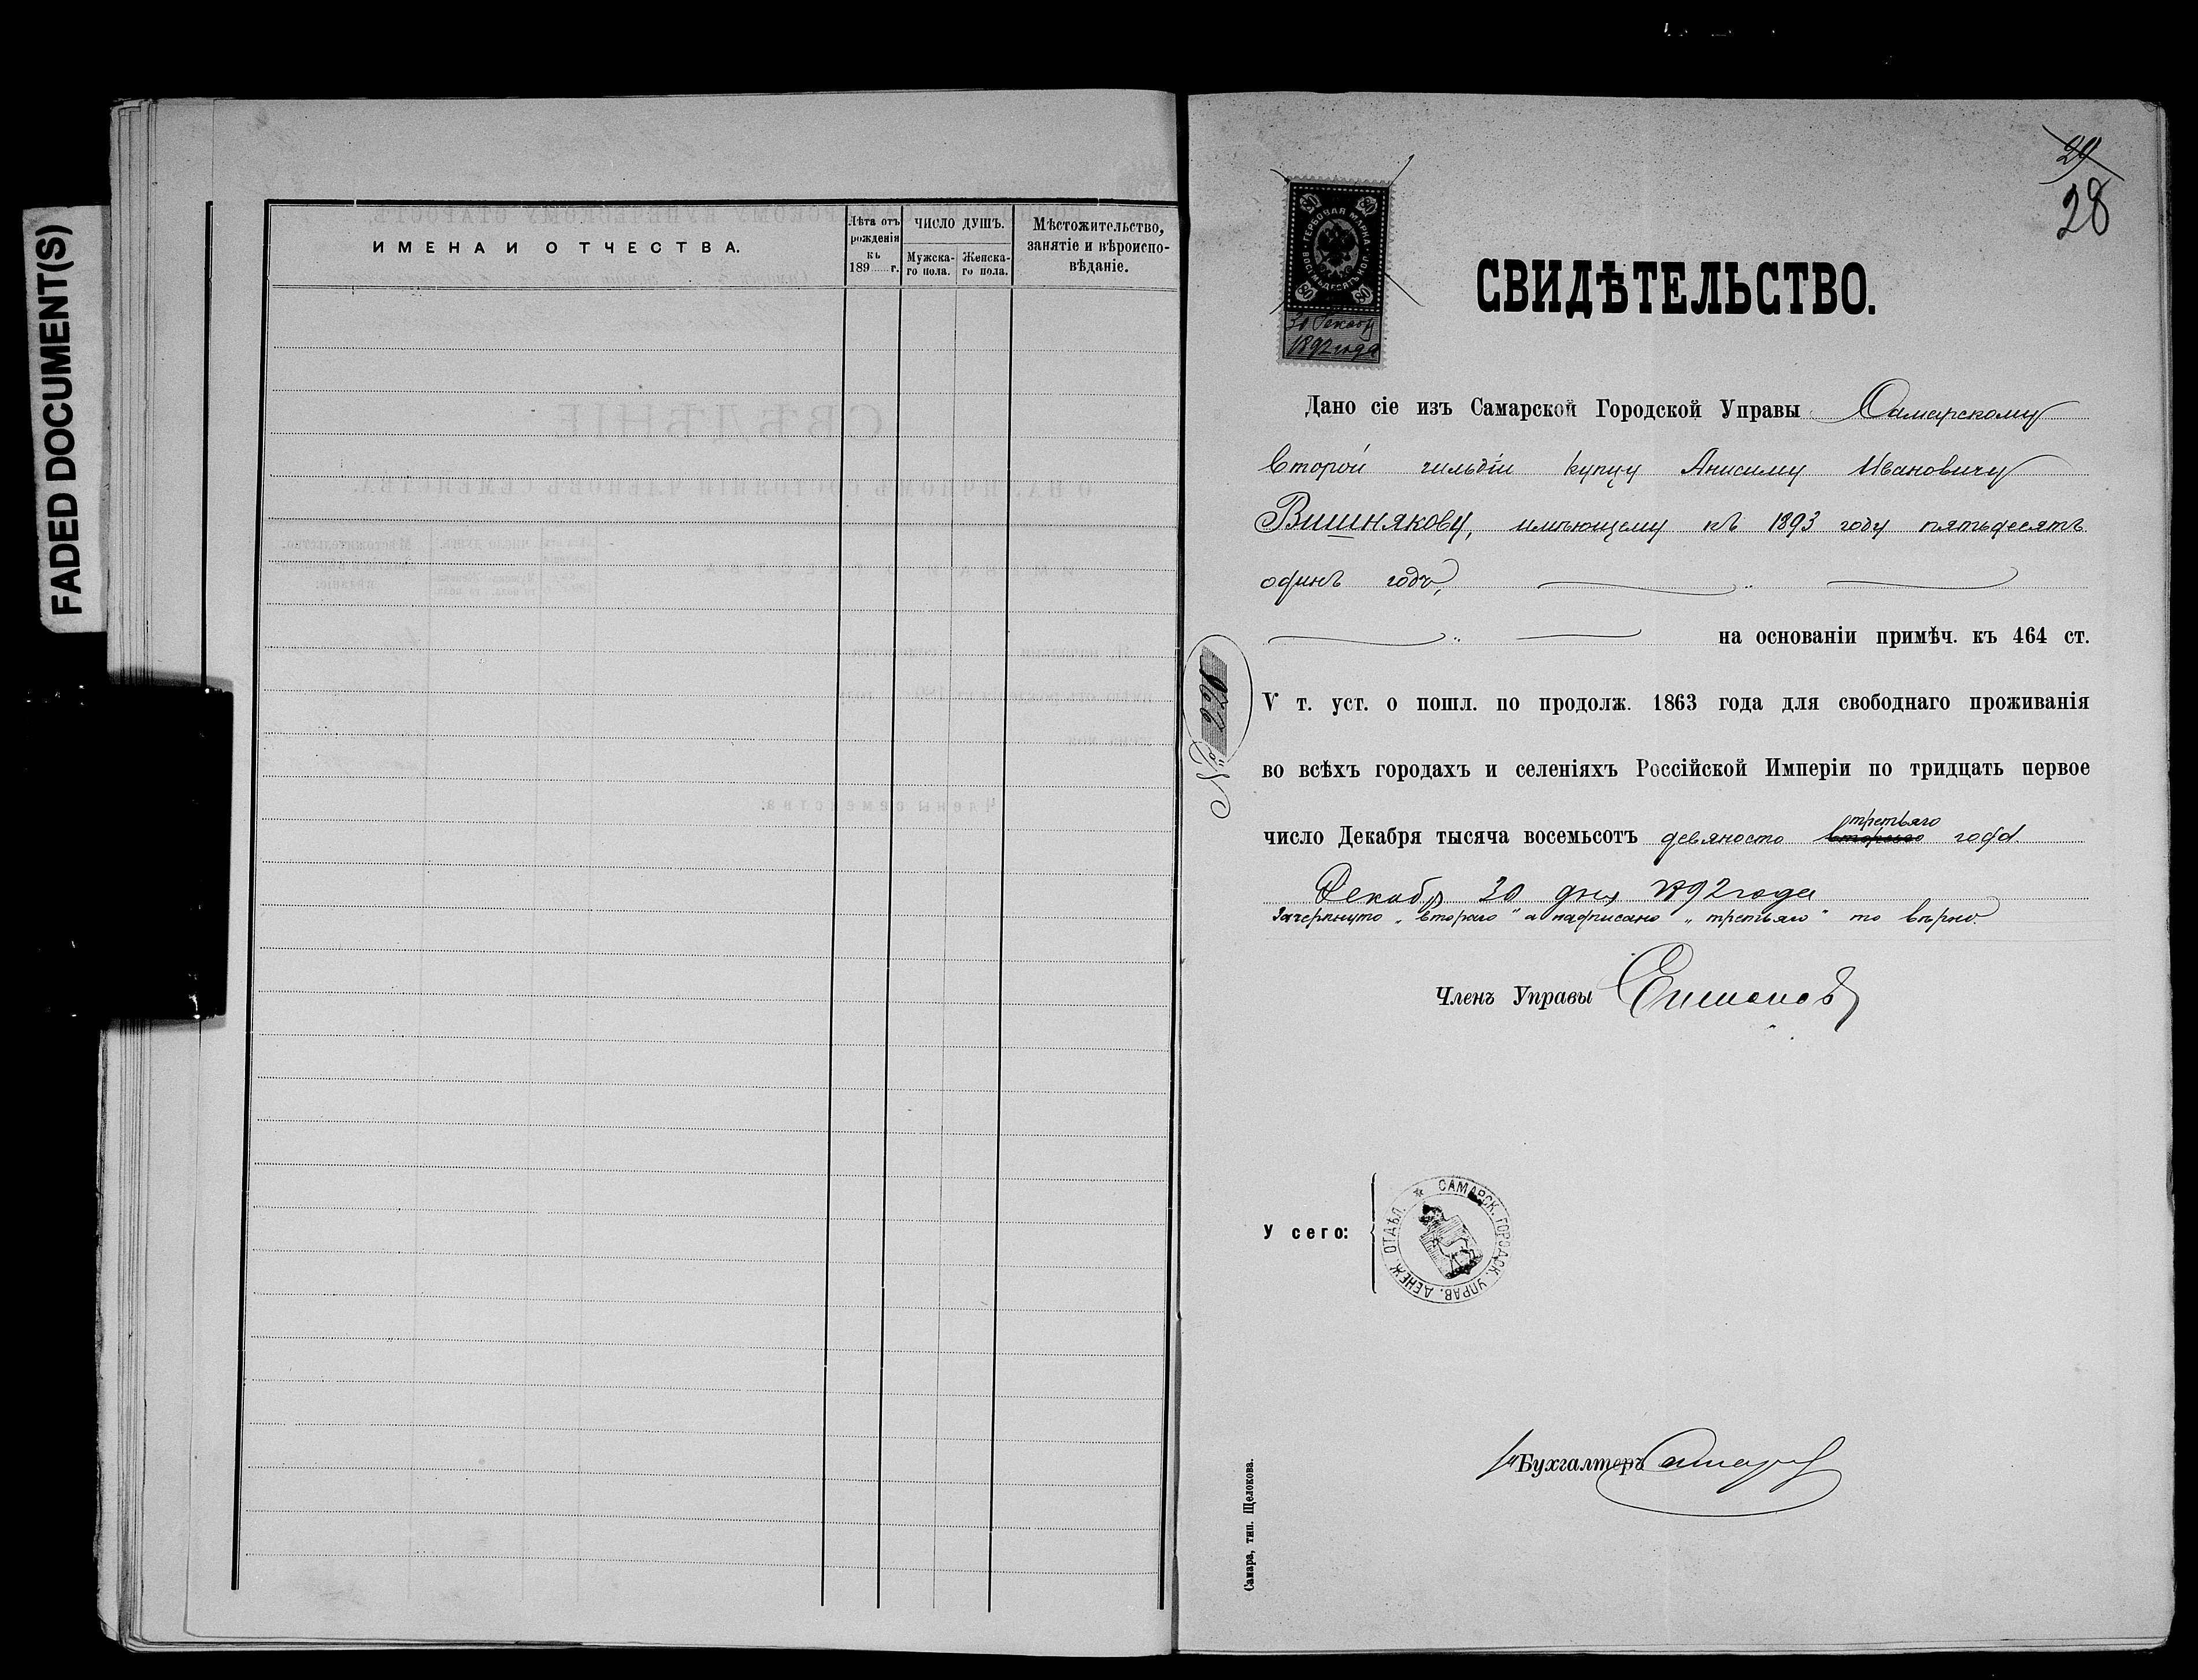 FADED DOCUMENT(S)
ИМЕНА И ОТЧЕСТВА.
Лѣта отъ рожденія къ 189 г.
ЧИСЛО ДУШЪ.
Мужска-го пола.
Женска-го пола.
Мѣстожительство, занятіе и вѣроиспо-вѣданіе.
29
28
ГЕРБОВАЯ МАРКА
ВОСЕМЬДЕСЯТЪ КОП.
80 80
80 80
30 Декабр
1892 года
СВИДѢТЕЛЬСТВО.
Дано сіе изъ Самарской Городской Управы Самарскому
второй гильдіи купцу Анисиму Ивановичу
Вишнякову, имѣющему къ 1893 году пятьдесятъ
одинъ годъ,
на основаніи примѣч. къ 464 ст.
V т. уст. о пошл. по продолж. 1863 года для свободнаго проживанія
во всѣхъ городахъ и селеніяхъ Россійской Имперіи по тридцать первое
третьяго
число Декабря тысяча восемьсотъ девяносто втораго года.
Декабр 30 дня 1892 года
Зачеркнуто „втораго" а надписано „третьяго" то вѣрно.
№
Членъ Управы
У сего:
САМАРСК. ГОРОДСК. УПРАВ. ДЕНЕЖ. ОТДѢЛ.
Бухгалтеръ
Самара, тип. Щелокова.